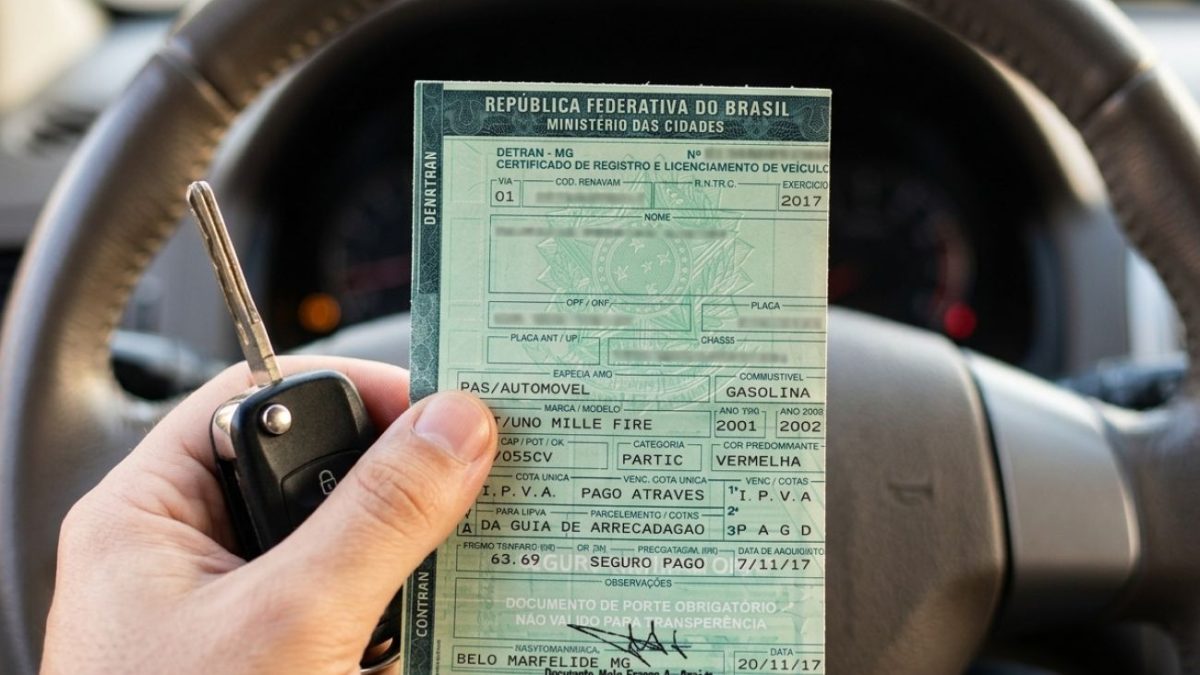 REPÚBLICA FEDERATIVA DO BRASIL
MINISTÉRIO DAS CIDADES
DENRTRAN
DETRAN - MG Nº
CERTIFICADO DE REGISTRO E LICENCIAMENTO DE VEÍCULO
VIA COD. RENAVAM R.N.TR.C. EXERCICIO
01 2017
NOME
OPF / ONF PLACA
PLACA ANT / UP CHASS5
EAPECIA AMO COMMUSTIVEL
PAS/AUTOMOVEL GASOLINA
MARCA / MODELO ANO 19) ANO 2002
T/UNO MILLE FIRE 2001 2002
CAP / POT / OK CATEGORIA COR PREDOMMANTE
/055CV PARTIC VERMELHA
COTA UNICA VENC. COTA UNICA VENC / COTAS
I.P.V.A. PAGO ATRAVES 1ª I.P.V.A
PARA LIPVA PARCELEMENTO / COTNS 2ª
A DA GUIA DE ARRECADAGAO 3 P A G D
DATA DE
63.69 SEGURO PAGO 7/11/17
OBSERVAÇÕES
DOCUMENTO DE PORTE OBRIGATÓRIO
NÃO VALIDO PARA TRANSPERÊNCIA
CONTRAN
DATA
BELO MARFELIDE MG 20/11/17